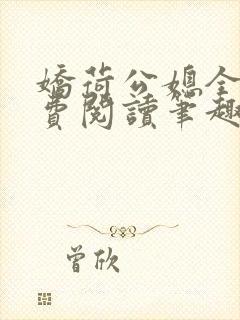 嬌荷公媳全
費閱讀筆趣
曾欣